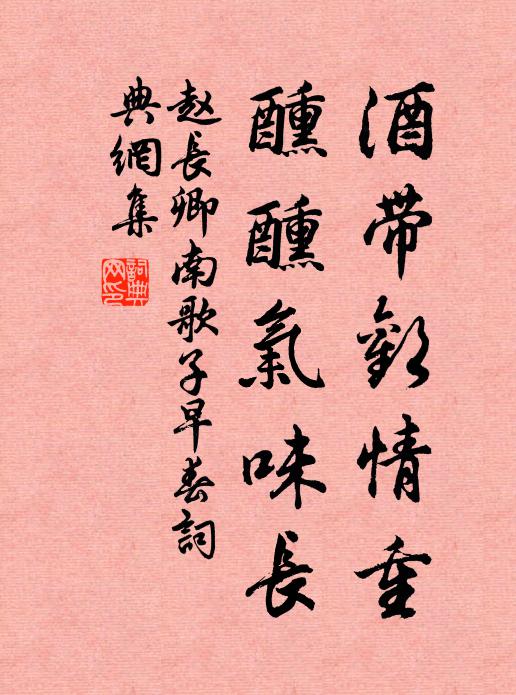 酒帶歡情重
醺醺氣味長
赵長卿南歌子早春詞
典網集
詞典
网印